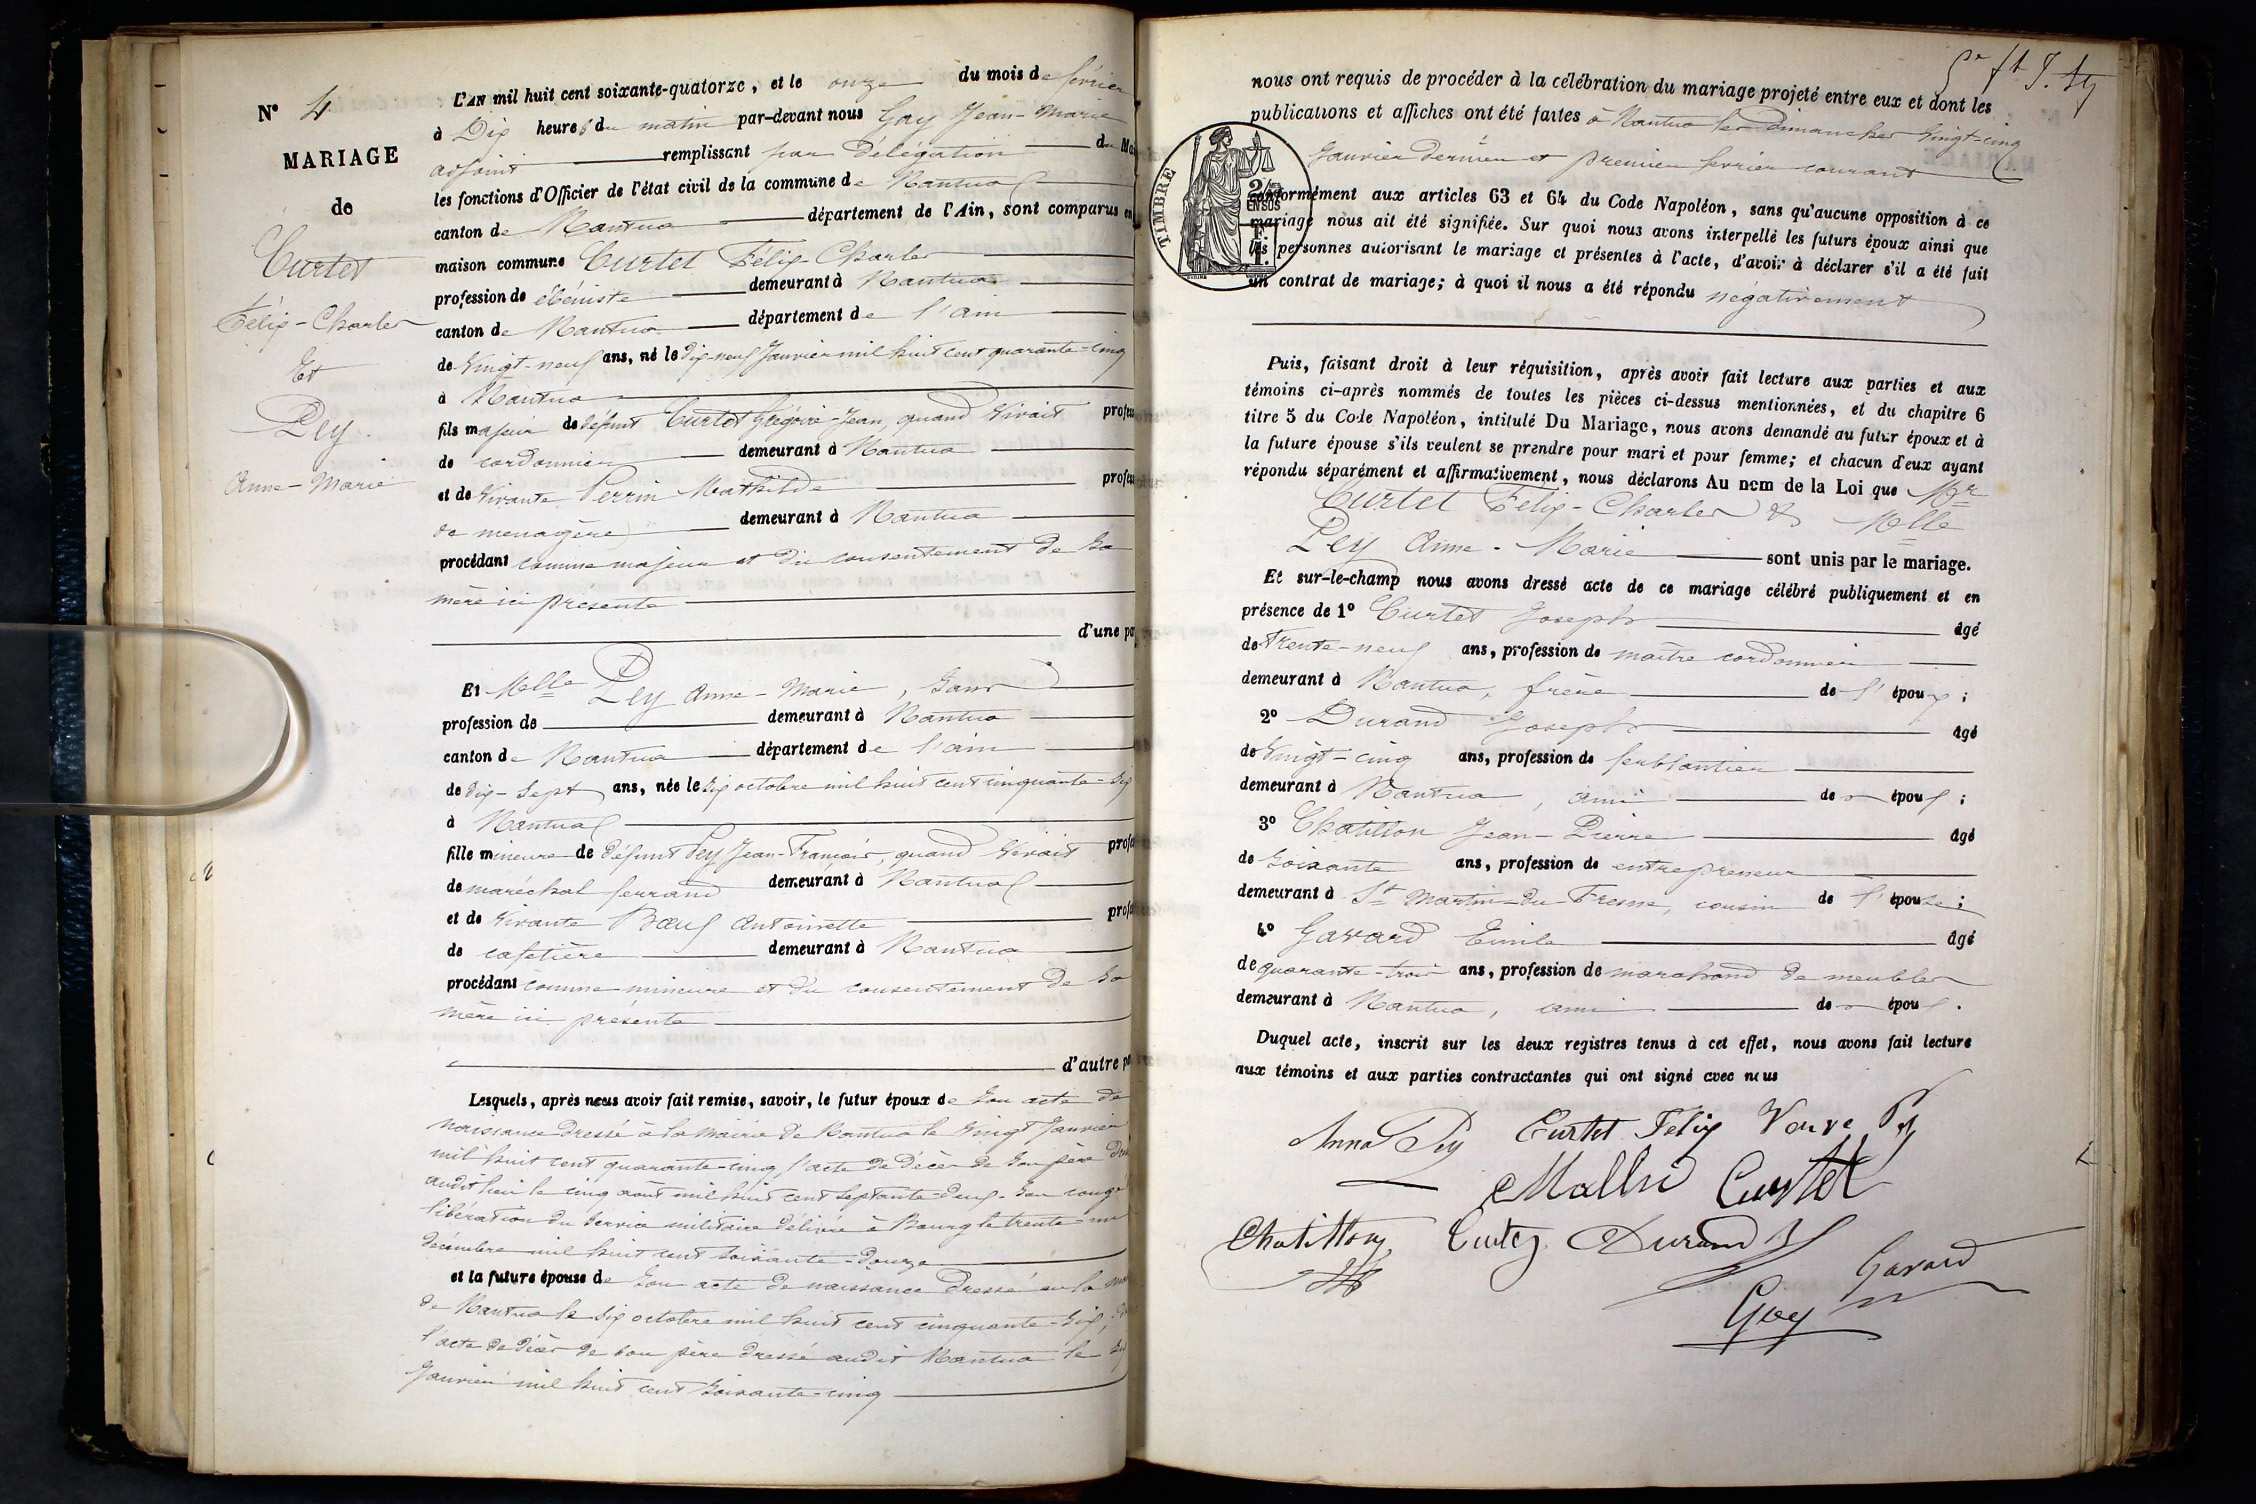 N° 4
MARIAGE
de
Curtet
Félix-Charles
Et
Pey
Anne-Marie
L'AN mil huit cent soixante-quatorze, et le onze du mois de février
à Dix heures du matin par-devant nous Gay Jean-Marie
adjoint remplissant par délégation du Ma
les fonctions d'Officier de l'état civil de la commune de Nantua
canton de Nantua département de l'Ain, sont comparus en
maison commune Curtet Félix Charles
profession de ébéniste demeurant à Nantua
canton de Nantua département de l'ain
de Vingt-neuf ans, né le dix-neuf Janvier mil huit cent quarante-cinq
à Nantua
fils majeur de défunt Curtet Grégoire-Jean, quand vivait profes
de cordonnier demeurant à Nantua
et de vivante Perrin Mathilde profes
de menagère demeurant à Nantua
procédant comme majeur et du consentement de sa
mère ici présente
d'une pa
Et Melle Pey Anne-Marie, sans
profession de demeurant à Nantua
canton de Nantua département de l'ain
de dix-sept ans, née le six octobre mil huit cent cinquante-six
à Nantua
fille mineure de défunt Pey Jean-François, quand vivait profes
de maréchal ferrand demeurant à Nantua
et de vivante Bœuf Antoinette profes
de cafetière demeurant à Nantua
procédant comme mineure et du consentement de sa
mère ici présente
d'autre pa
Lesquels, après nous avoir fait remise, savoir, le futur époux de son acte de
naissance dressé à la mairie de Nantua le vingt Janvier
mil huit cent quarante-cinq, l'acte de décès de son père
audit lieu le cinq août mil huit cent septante-deux. son congé
libération du service militaire délivré à Bourg le trente-un
décembre mil huit cent soixante-douze
et la future épouse de son acte de naissance dressé en la
de Nantua le six octobre mil huit cent cinquante-six,
l'acte de décès de son père dressé audit Nantua le
Janvier mil huit cent soixante-cinq
nous ont requis de procéder à la célébration du mariage projeté entre eux et dont les
publications et affiches ont été faites à Nantua les dimanches vingt-cinq
Janvier dernier et premier février courant
TIMBRE
2/10 EN SUS
1 F.
conformément aux articles 63 et 64 du Code Napoléon, sans qu'aucune opposition à ce
mariage nous ait été signifiée. Sur quoi nous avons interpellé les futurs époux ainsi que
les personnes autorisant le mariage et présentes à l'acte, d'avoir à déclarer s'il a été fait
un contrat de mariage; à quoi il nous a été répondu négativement
Puis, faisant droit à leur réquisition, après avoir fait lecture aux parties et aux
témoins ci-après nommés de toutes les pièces ci-dessus mentionnées, et du chapitre 6
titre 5 du Code Napoléon, intitulé Du Mariage, nous avons demandé au futur époux et à
la future épouse s'ils veulent se prendre pour mari et pour femme; et chacun d'eux ayant
répondu séparément et affirmativement, nous déclarons Au nom de la Loi que Mr
Curtet Félix-Charles & Melle
Pey Anne-Marie sont unis par le mariage.
Et sur-le-champ nous avons dressé acte de ce mariage célébré publiquement et en
présence de 1° Curtet Joseph âgé
de trente-neuf ans, profession de maître cordonnier
demeurant à Nantua, frère de l'époux;
2° Durand Joseph âgé
de vingt-cinq ans, profession de ferblantier
demeurant à Nantua, ami de époux;
3° Chatillon Jean-Pierre âgé
de soixante ans, profession de entrepreneur
demeurant à St Martin-du Fresne, cousin de l'épouse;
4° Gavard Emile âgé
de quarante-trois ans, profession de marchand de meubles
demeurant à Nantua, ami de époux.
Duquel acte, inscrit sur les deux registres tenus à cet effet, nous avons fait lecture
aux témoins et aux parties contractantes qui ont signé avec nous
Anna Pey Curtet Félix Veuve Pey
Curtet
Chatillon Durand
Gavard
Gay